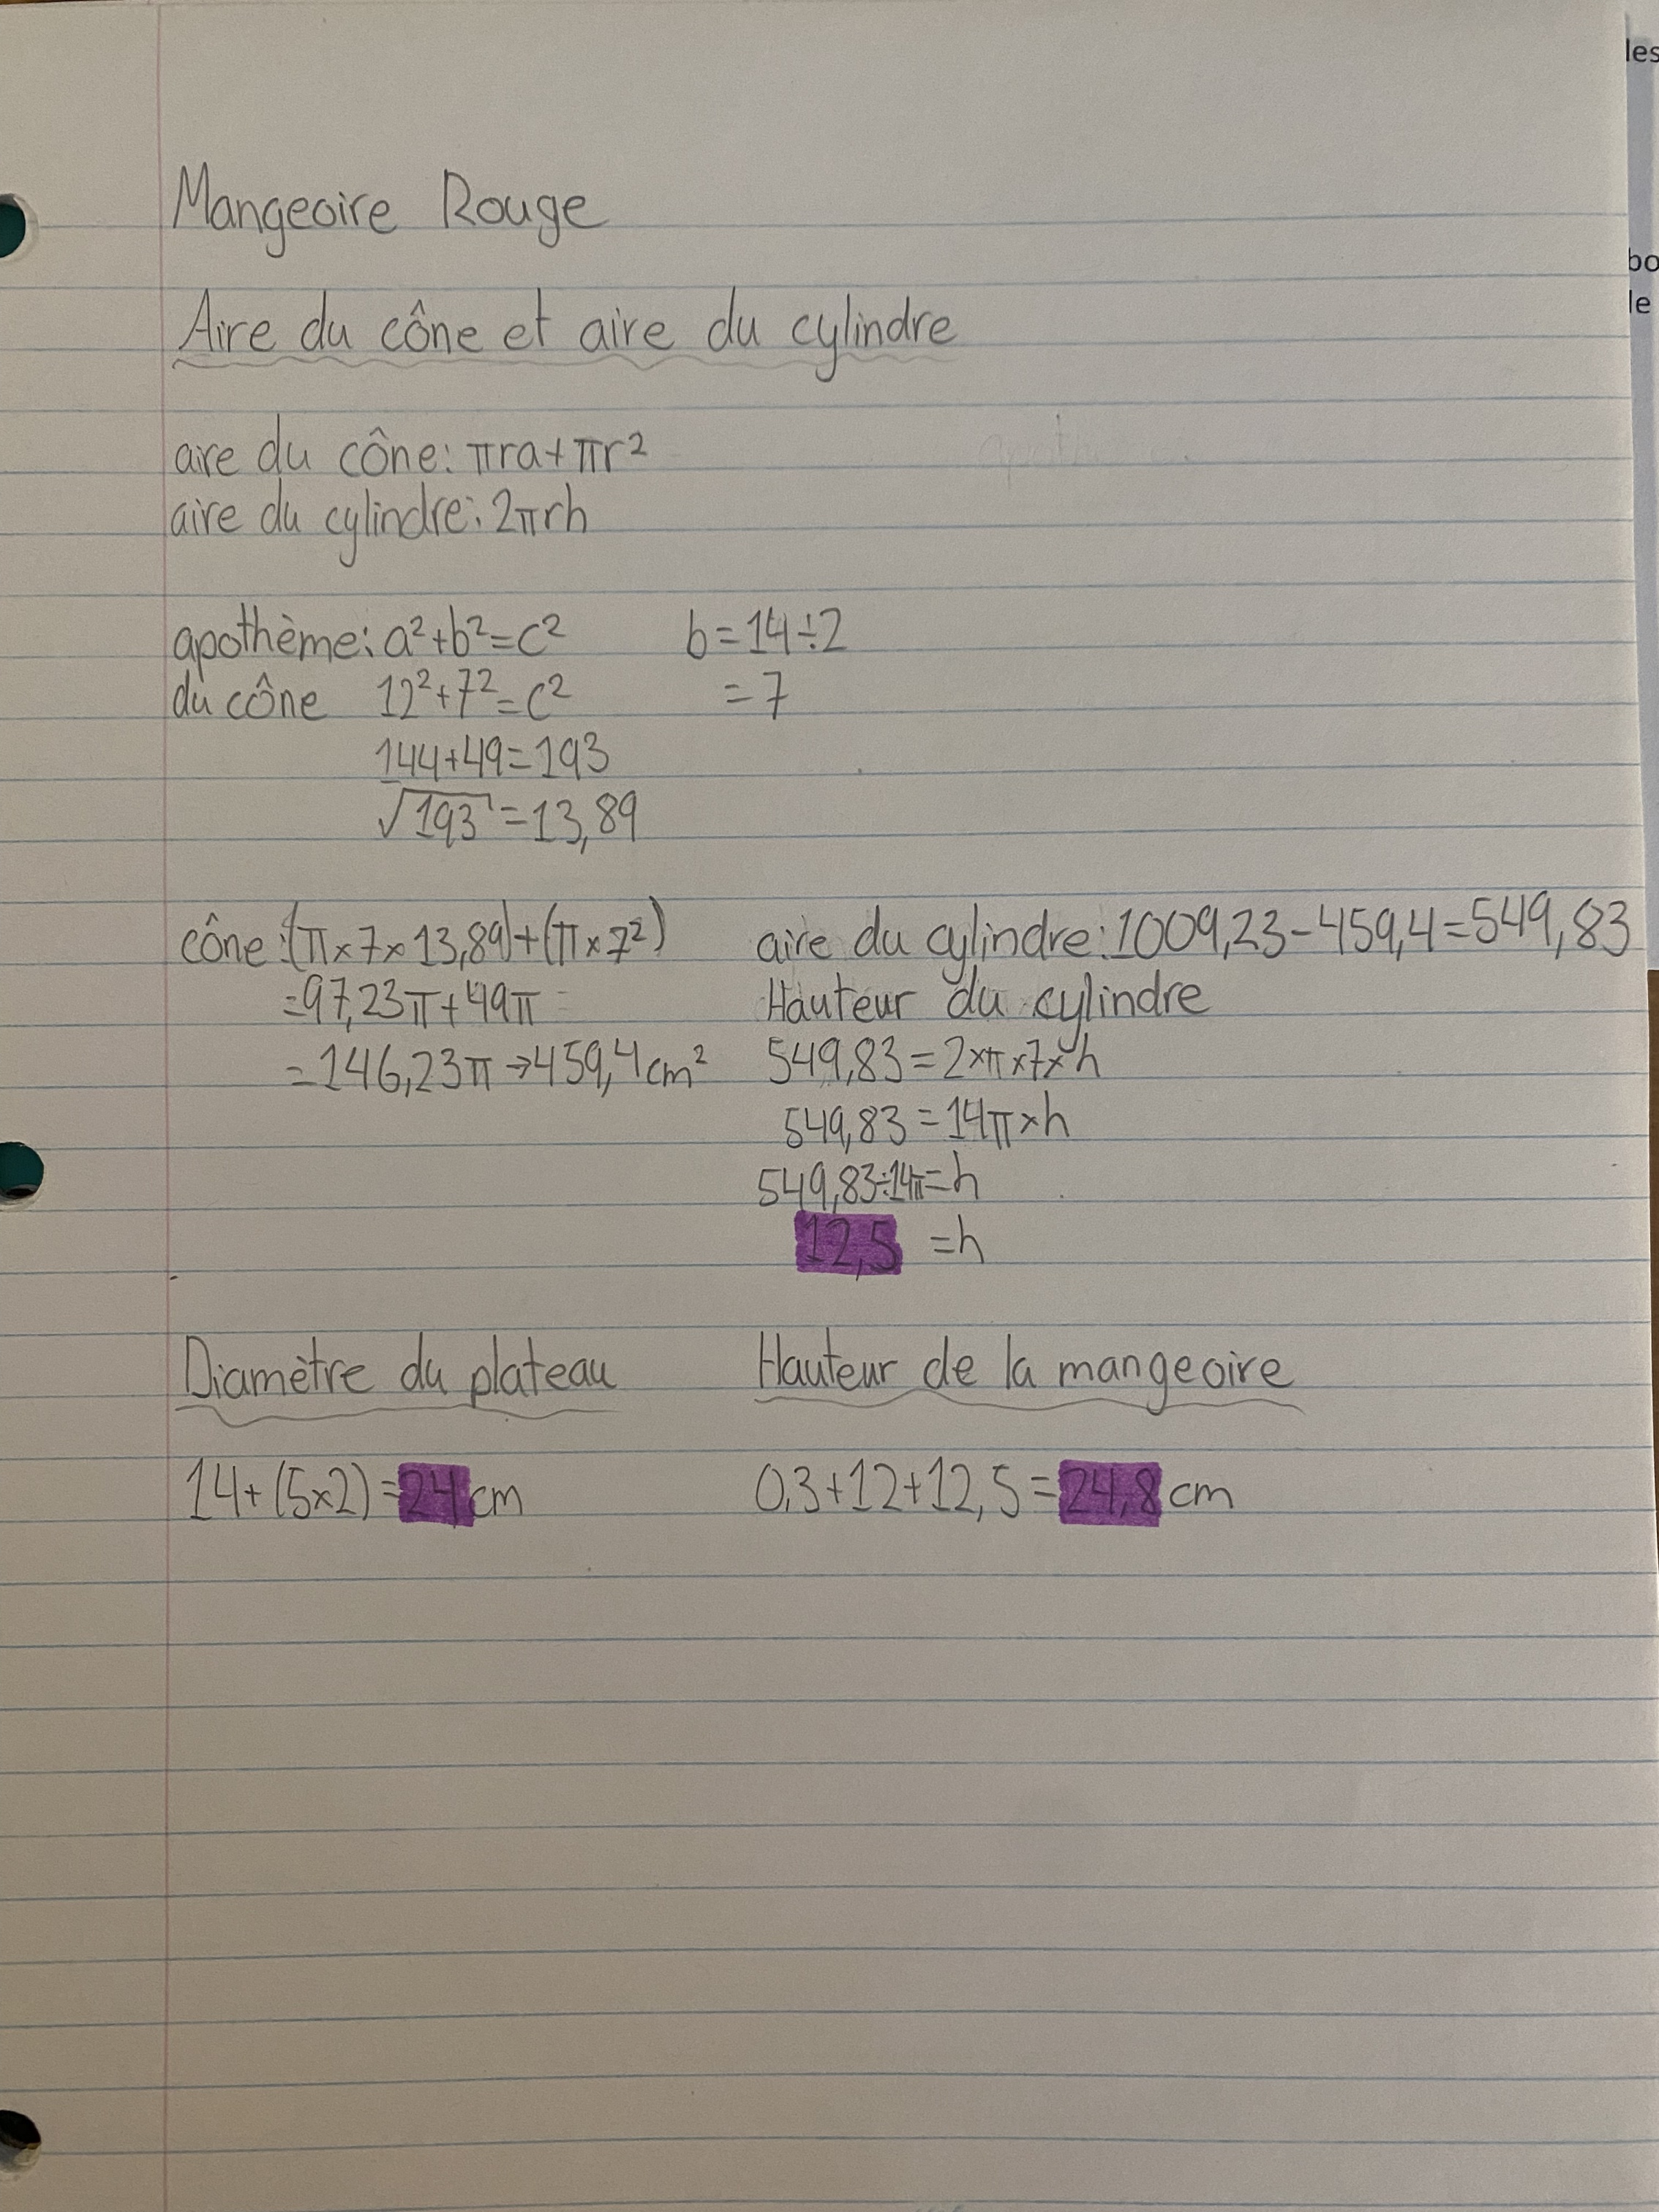 les
bo
le
Mangeoire Rouge
Aire du cône et aire du cylindre
aire du cône: πra+πr²
aire du cylindre: 2πrh
apothème: a²+b²=c²
du cône 12²+7²=c²
144+49=193
√193=13,89
b=14÷2
=7
cône:(π×7×13,89)+(π×7²)
=97,23π+49π
=146,23π→459,4cm²
aire du cylindre:1009,23-459,4=549,83
Hauteur du cylindre
549,83=2×π×7×h
549,83=14π×h
549,83÷14π=h
12,5 =h
Diamètre du plateau
14+(5×2)=24cm
Hauteur de la mangeoire
0,3+12+12,5=24,8cm